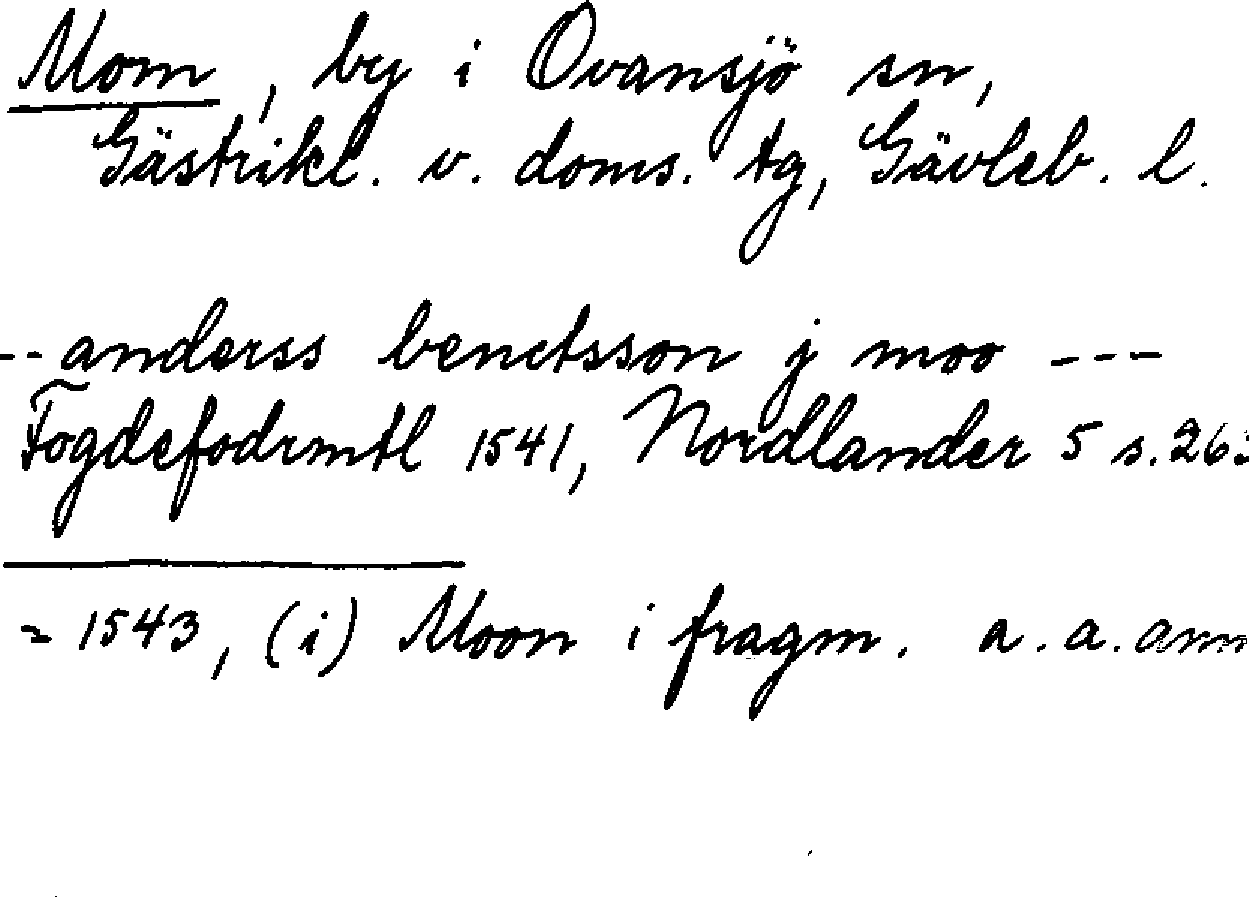 Mom, by i Ovansjö sn,
Gästrikl. v. doms. tg, Gävleb. l.
-- anderss benctsson j moo ---
Fogdefodrmtl 1541, Nordlander 5 s. 263
= 1543, (i) Moon i fragm. a. a. anm